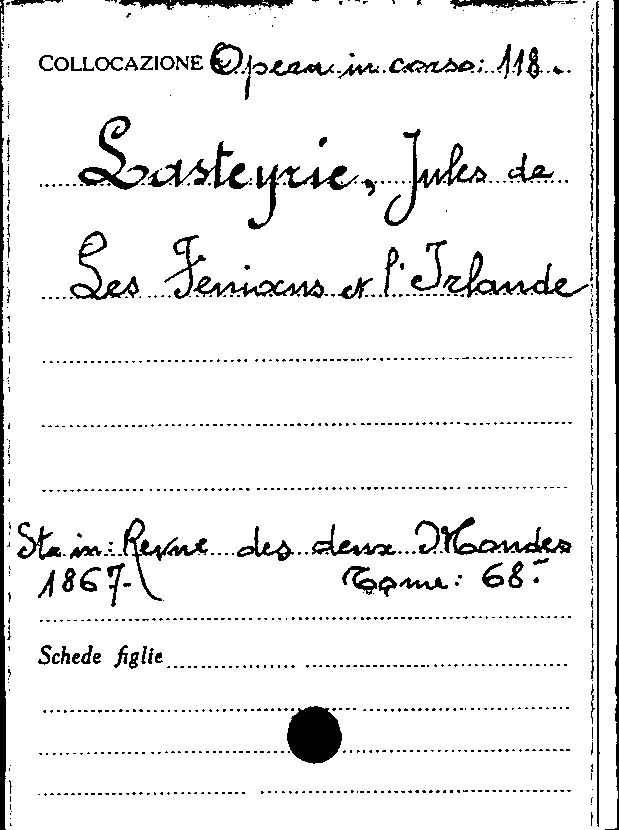 COLLOCAZIONE Opera in corso: 118.
Lasteyrie, Jules de
Les Fenians et l'Irlande
Sta in: Revue des deux Mondes
1867. Tome: 68.
Schede figlie